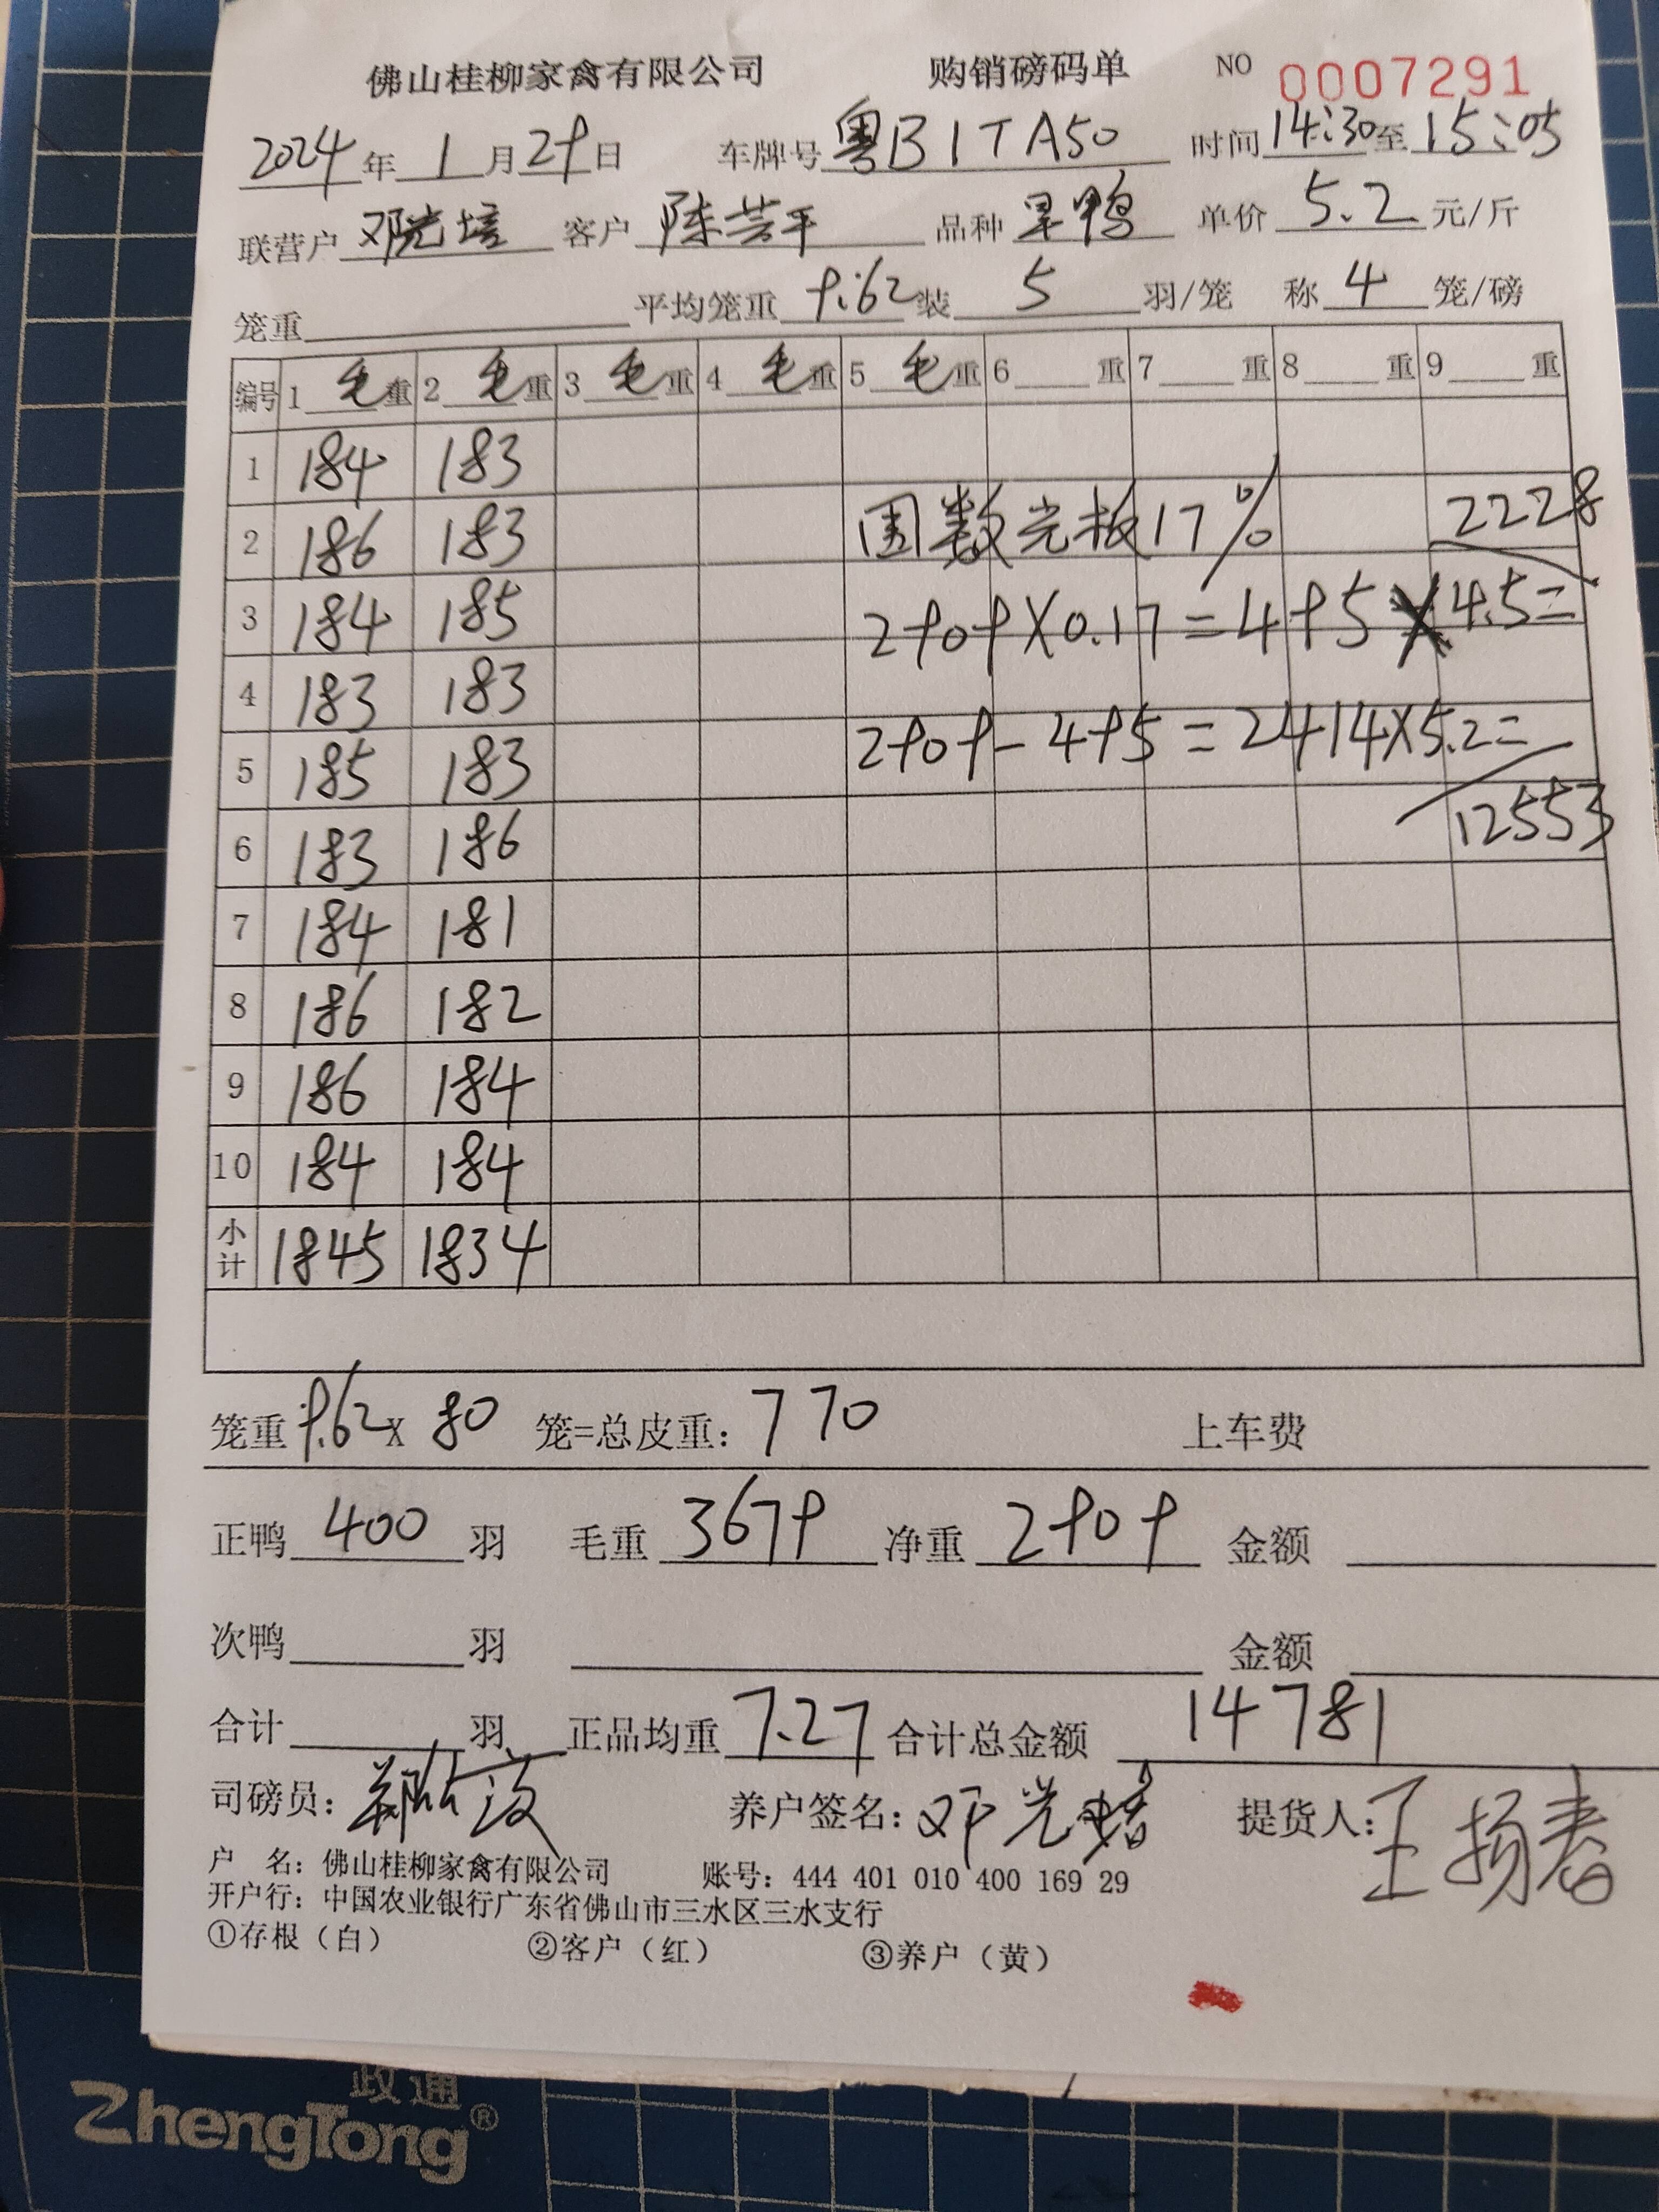 佛山桂柳家禽有限公司 购销磅码单 NO 0007291
2024年1月29日 车牌号粤B1TA50 时间14:30至15:05
联营户邓光培 客户陈芸平 品种旱鸭 单价5.2元/斤
笼重 平均笼重9.62装5羽/笼 称4笼/磅
编号 1毛重 2毛重 3毛重 4毛重 5毛重 6重 7重 8重 9重
1 184 183
2 186 183 围数光板17% 2228
3 184 185 2909X0.17=495X4.5=
4 183 183
5 185 183 2909-495=2414X5.2=
6 183 186 12553
7 184 181
8 186 182
9 186 184
10 184 184
小计 1845 1834
笼重9.62X80笼=总皮重:770 上车费
正鸭400羽 毛重3679 净重2909 金额
次鸭 羽 金额
合计 羽 正品均重7.27 合计总金额14781
司磅员: 养户签名:邓光培 提货人:王扬春
户 名:佛山桂柳家禽有限公司 账号:444 401 010 400 169 29
开户行:中国农业银行广东省佛山市三水区三水支行
①存根(白) ②客户(红) ③养户(黄)
政通
ZhengTong®